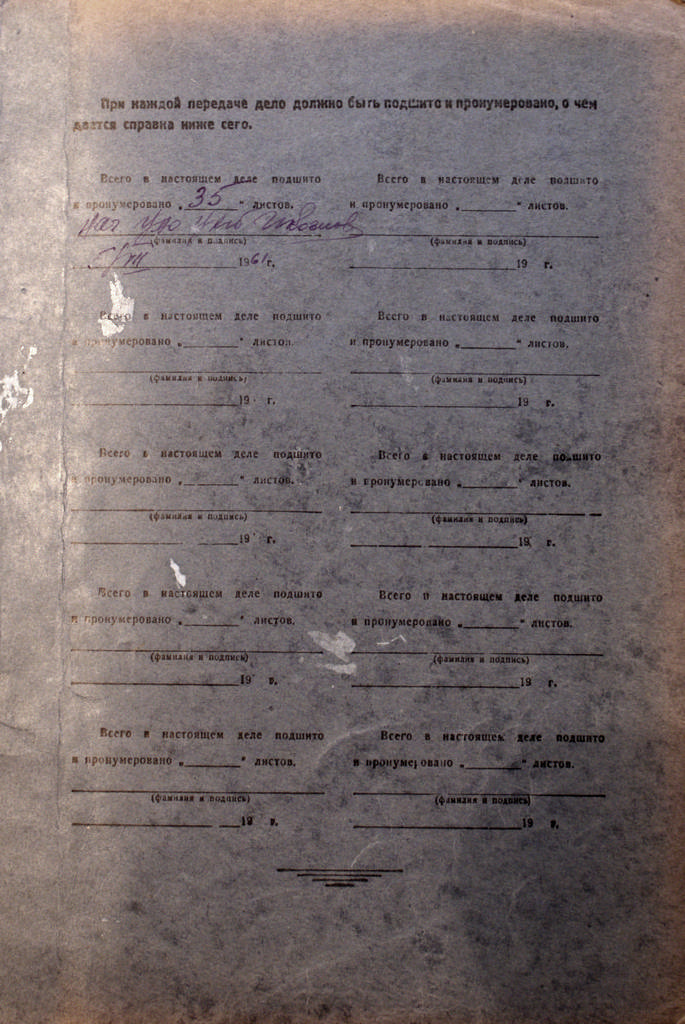 При каждой передаче дело должно быть подшито и пронумеровано, о чем
дается справка ниже сего.
Всего в настоящем деле подшито
и пронумеровано „ 35 “ листов.
(фамилия и подпись)
1961 г.
Всего в настоящем деле подшито
и пронумеровано „______“ листов.
(фамилия и подпись)
19 г.
Всего в настоящем деле подшито
и пронумеровано „______“ листов.
(фамилия и подпись)
19 г.
Всего в настоящем деле подшито
и пронумеровано „______“ листов.
(фамилия и подпись)
19 г.
Всего в настоящем деле подшито
и пронумеровано „______“ листов.
(фамилия и подпись)
19 г.
Всего в настоящем деле подшито
и пронумеровано „______“ листов.
(фамилия и подпись)
19 г.
Всего в настоящем деле подшито
и пронумеровано „______“ листов.
(фамилия и подпись)
19 г.
Всего в настоящем деле подшито
и пронумеровано „______“ листов.
(фамилия и подпись)
19 г.
Всего в настоящем деле подшито
и пронумеровано „______“ листов.
(фамилия и подпись)
19 г.
Всего в настоящем деле подшито
и пронумеровано „______“ листов.
(фамилия и подпись)
19 г.